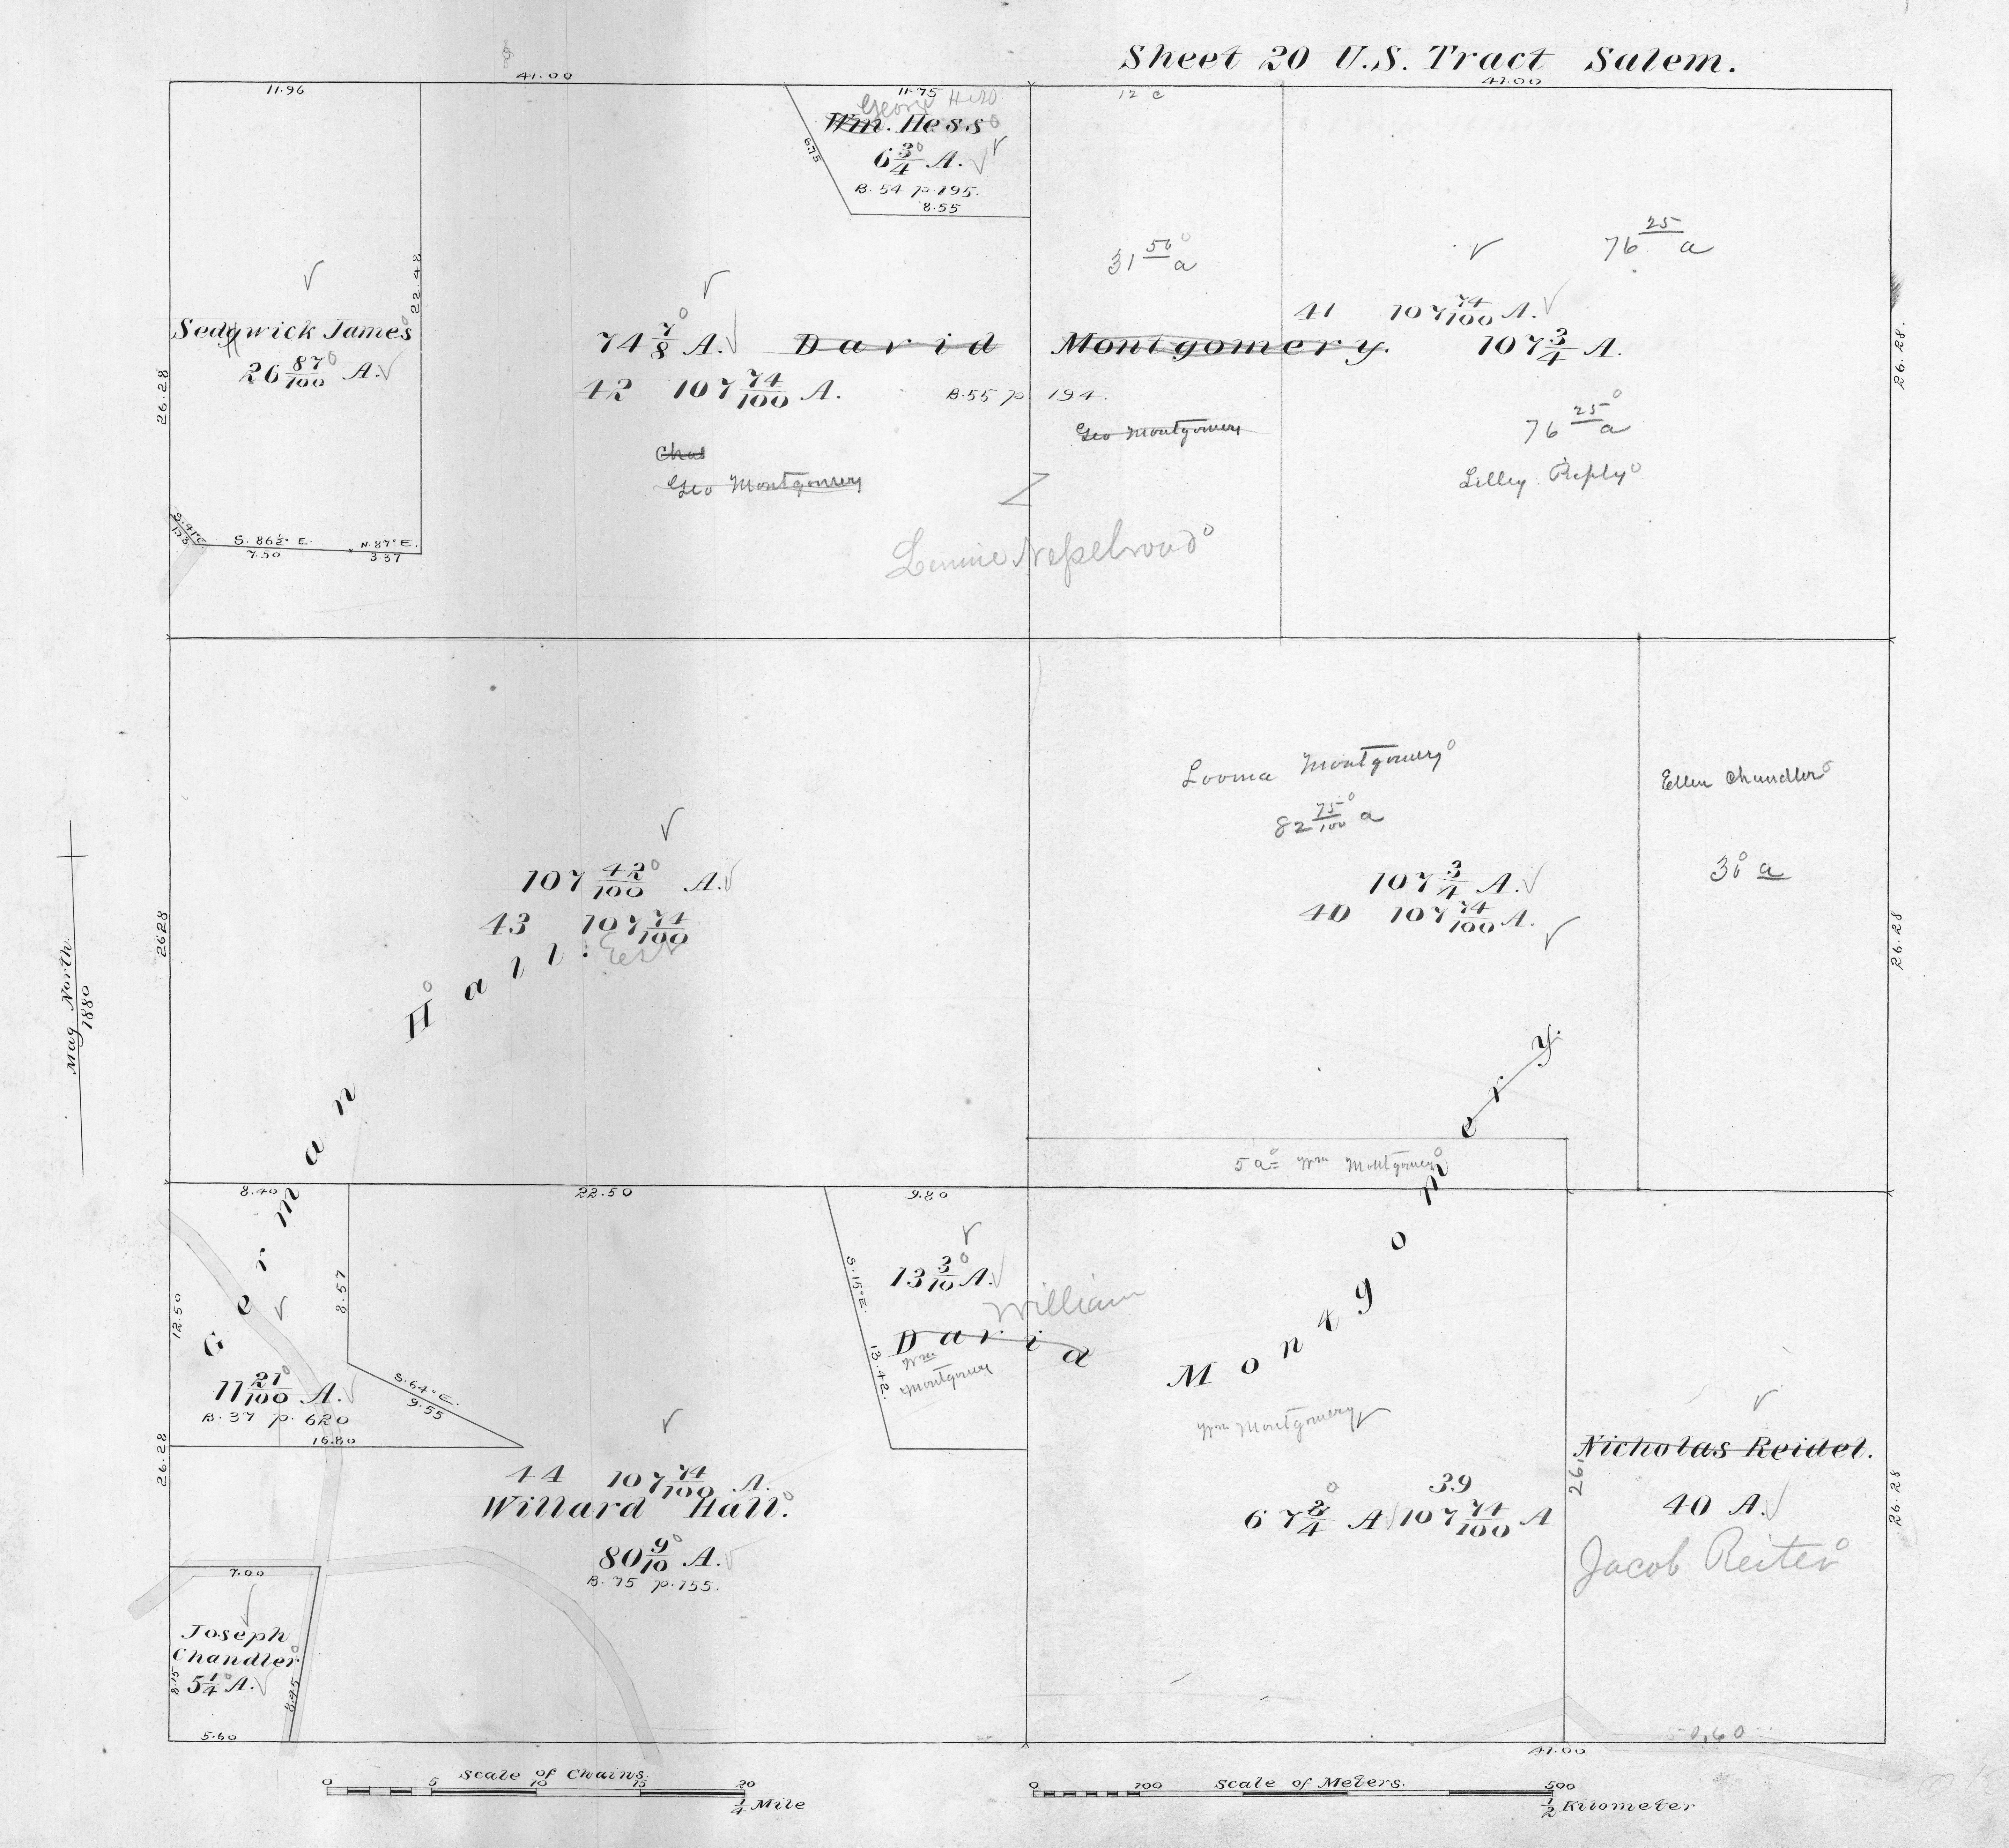 Sheet 20 U.S. Tract Salem.
41.00
41.00
11.96
11.75
12 c
George Hess
Wm. Hess
6 3/4 A.
B. 54 p. 195.
8.55
6.75
22.48
26.28
26.28.
Sedgwick James
26 87/100 A.
S. 41° E
S. 86½° E.
7.50
N. 87° E.
3.37
74 7/8 A.
David Montgomery.
107 3/4 A.
42 107 74/100 A.
B. 55 p 194.
31 50 a
76 25 a
41 107 74/100 A.
Chas
Geo Montgomery
Geo Montgomery
76 25 a
Lilley Reply
Mag North
1880
2628
26.28
107 42/100 A.
43 107 74/100
German Hall:
Looma Montgomery
82 75/100 a
107 3/4 A.
40 107 74/100 A.
Ellen Chandler
30 a
5 a= Wm Montgomery
8.40
22.50
9.80
12.50
8.57
S. 64° E.
9.55
11 21/100 A.
B. 37 p. 620
16.80
S. 15° E.
13.42.
13 3/10 A.
William
David Montgomery.
Wm
Montgomery
Wm Montgomery
26.28
44 107 74/100 A.
Willard Hall.
80 9/10 A.
B. 75 p. 155.
39
67 3/4 A 107 74/100 A
26.
Nicholas Reidel.
40 A.
Jacob Reiter
26.28
7.00
Joseph
Chandler
5 1/4 A.
8.15
8.95
5.60
41.00
0,60
Scale of Chains.
0 5 10 15 20
1/4 Mile
Scale of Meters.
0 100 500
1/2 Kilometer